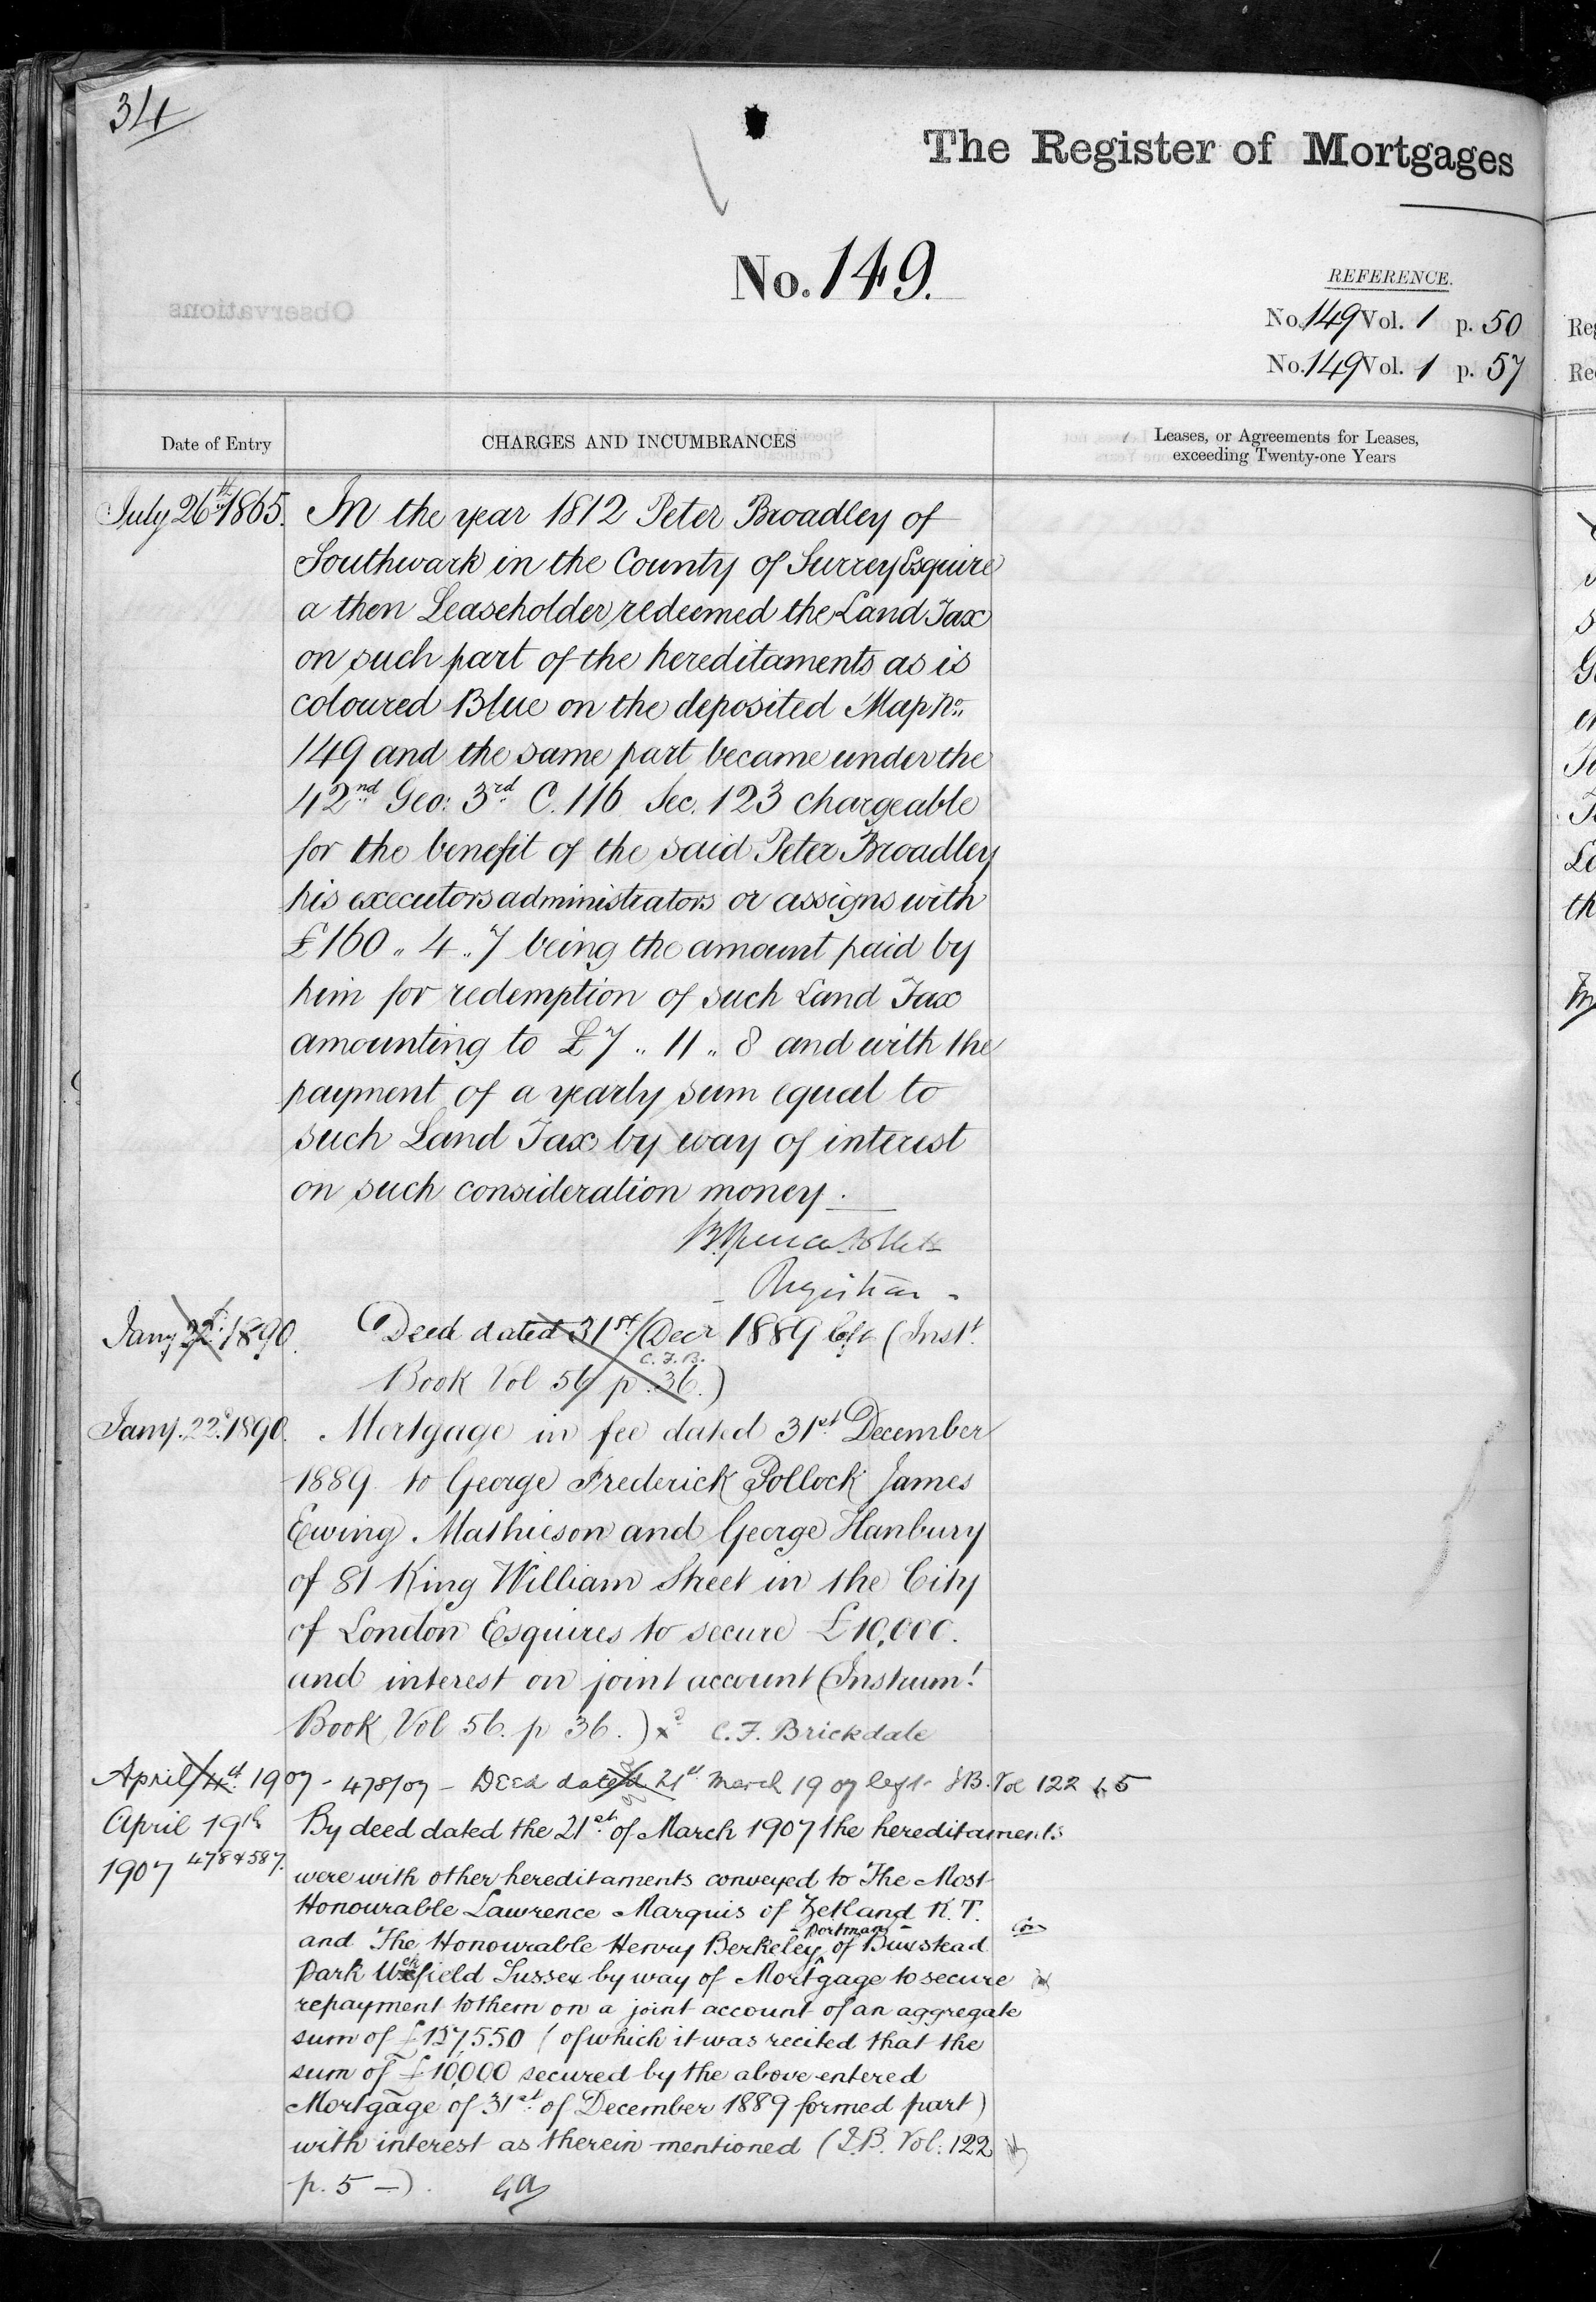 34
The Register of Mortgages
No. 149.
REFERENCE.
No. 149 Vol. 1 p. 50
No. 149 Vol. 1 p. 57
Date of Entry
CHARGES AND INCUMBRANCES
Leases, or Agreements for Leases,
exceeding Twenty-one Years
July 26th 1865. In the year 1812 Peter Broadley of
Southwark in the County of Surrey Esquire
a then Leaseholder redeemed the Land Tax
on such part of the hereditaments as is
coloured Blue on the deposited Map No.
149 and the same part became under the
42nd Geo: 3rd C. 116 Sec. 123 chargeable
for the benefit of the said Peter Broadley
his executors administrators or assigns with
£160 " 4 " 7 being the amount paid by
him for redemption of such Land Tax
amounting to £7 " 11 " 8 and with the
payment of a yearly sum equal to
such Land Tax by way of interest
on such consideration money.
Registrar
Jany 22d. 1890. Deed dated 31st Decr 1889 left (Inst.
C. F. B.
Book Vol 56 p. 36.)
Jany. 22d. 1890. Mortgage in fee dated 31st December
1889 to George Frederick Pollock James
Ewing Mathieson and George Hanbury
of 81 King William Street in the City
of London Esquires to secure £10,000.
and interest on joint account (Instrumt.
Book Vol 56. p 36.) xd C. F. Brickdale
April 4th 1907 - 478/07 - Deed dated 21st March 1907 left I B. Vol 122 p. 5
April 19th By deed dated the 21st of March 1907 the hereditaments
1907 478 & 587. were with other hereditaments conveyed to The Most
Honourable Lawrence Marquis of Zetland K. T.
and The Honourable Henry Berkeley - Portman - of Buxstead
Park Uckfield Sussex by way of Mortgage to secure
repayment to them on a joint account of an aggregate
sum of £157,550 (of which it was recited that the
sum of £10,000 secured by the above entered
Mortgage of 31st of December 1889 formed part)
with interest as therein mentioned (I.B. Vol: 122
p. 5 -).